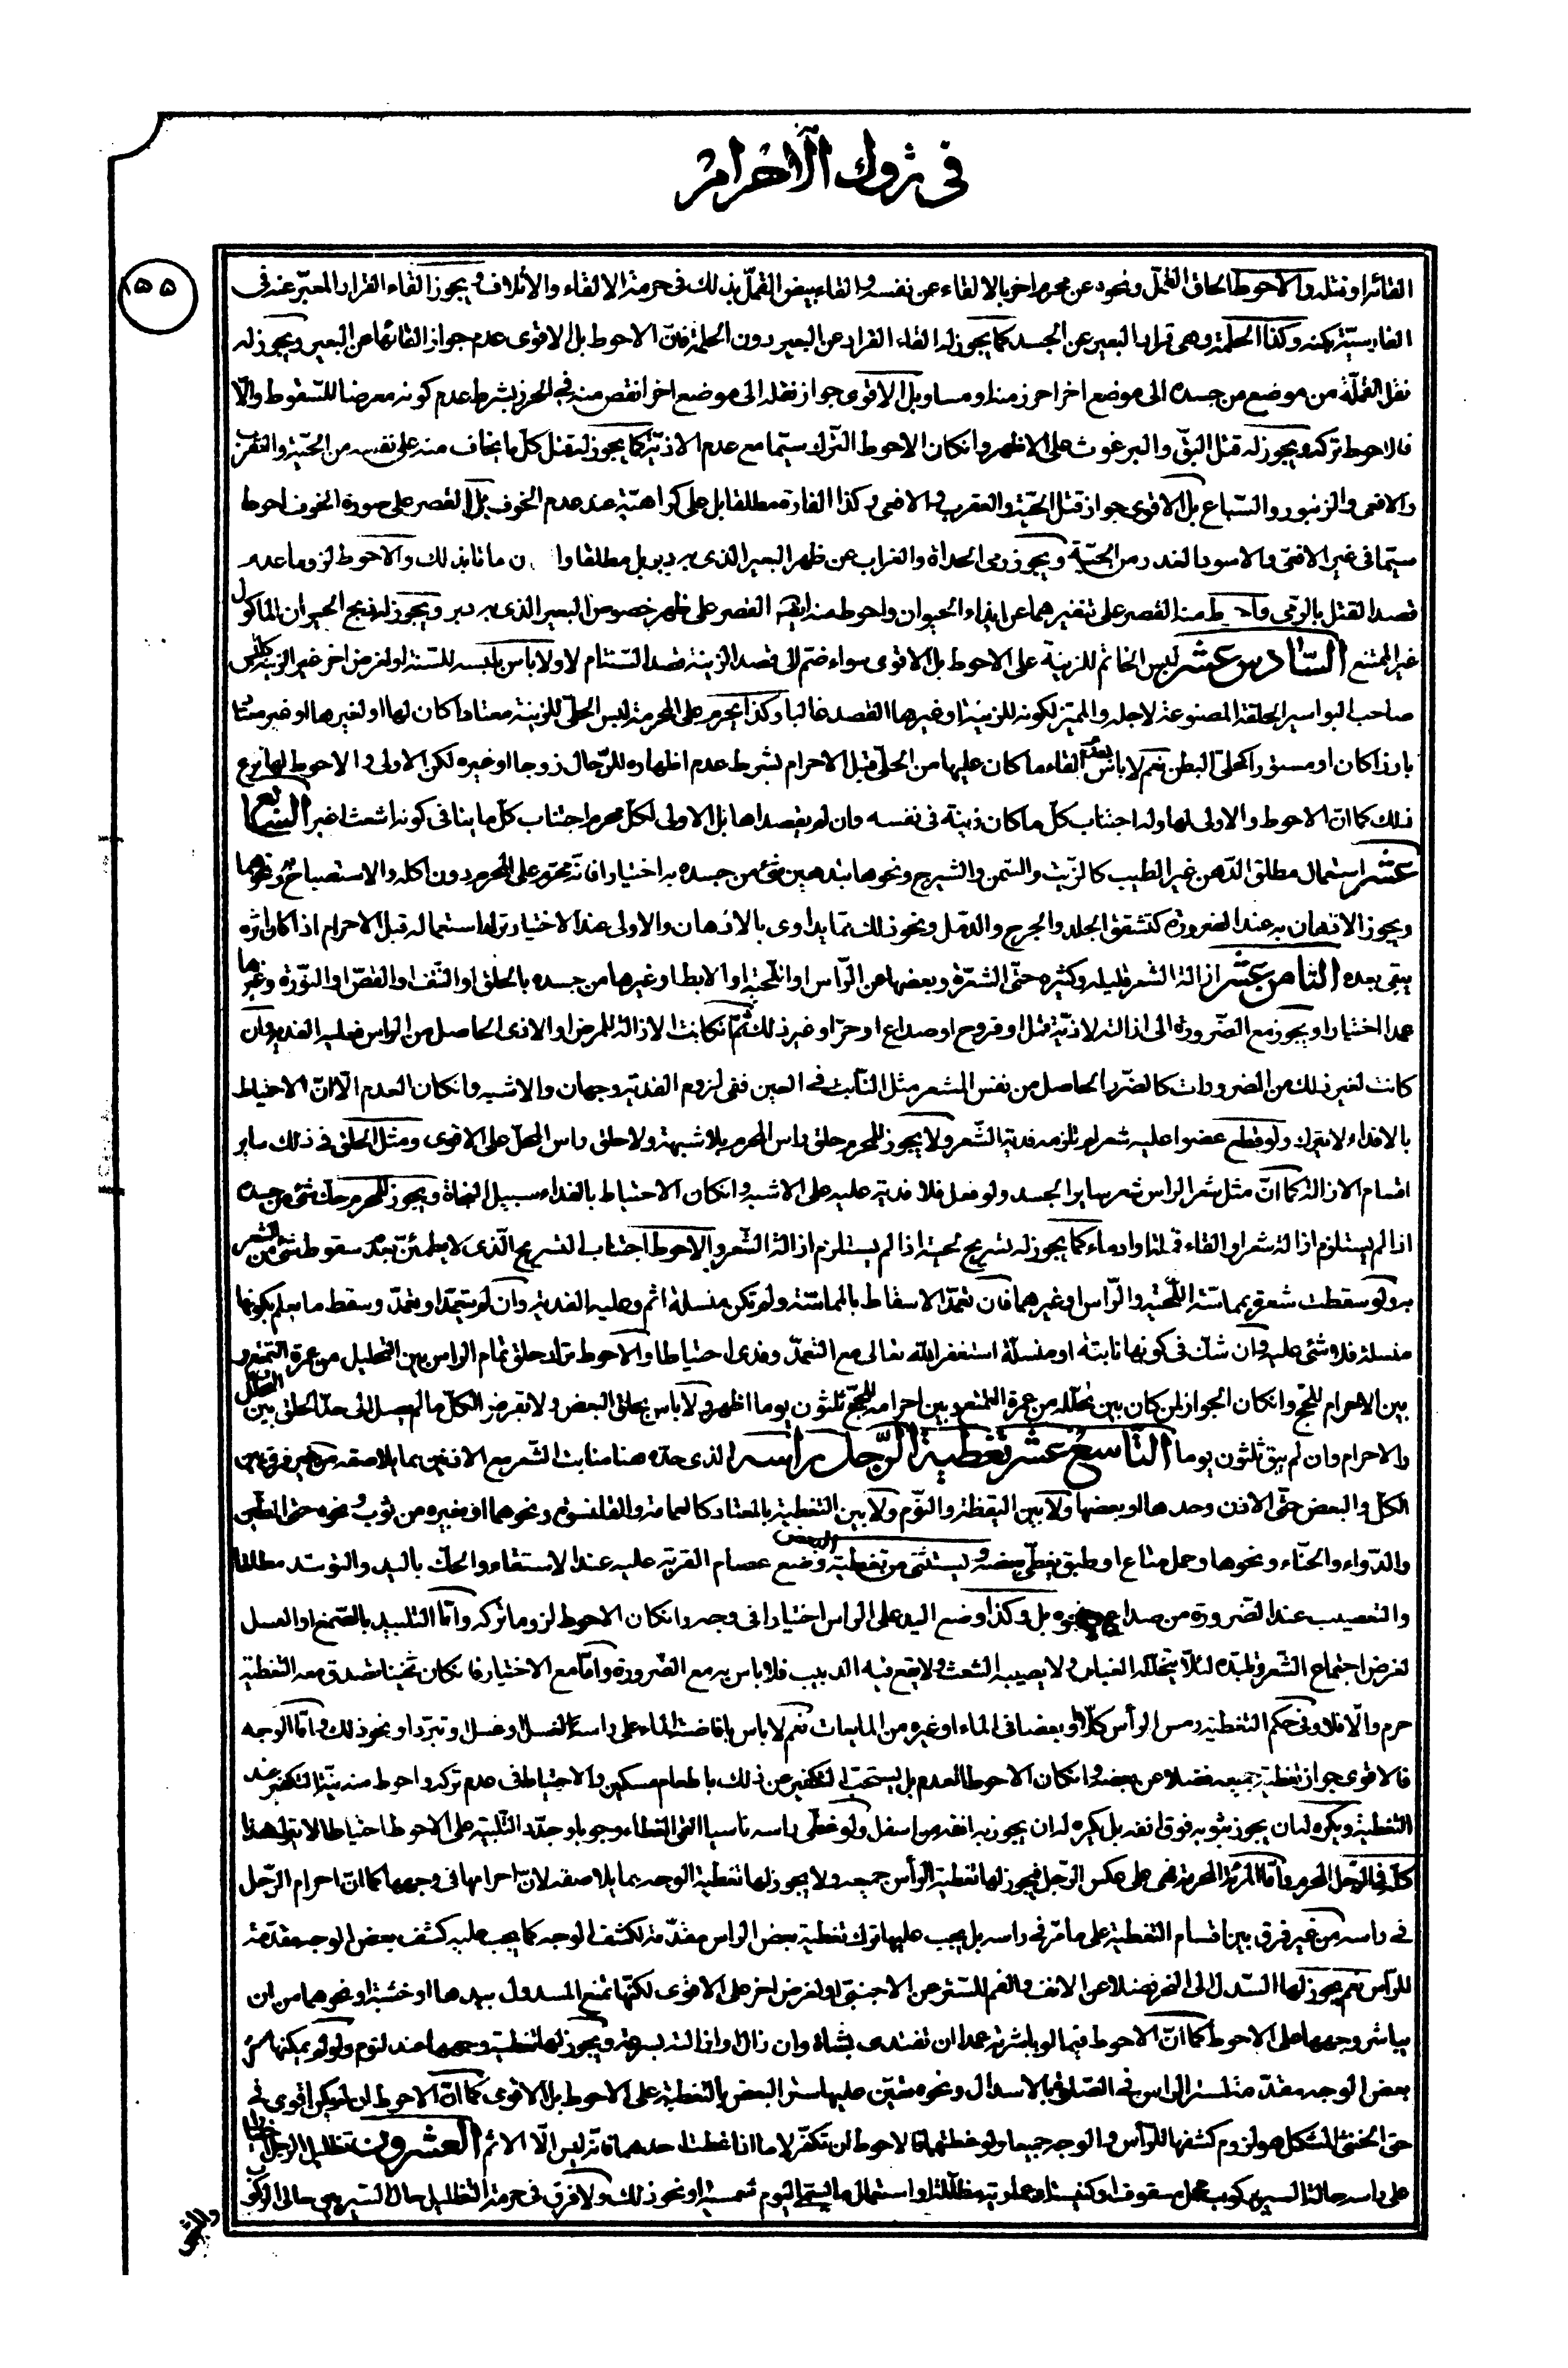 في تروك الاحرام
١٥٥
القائه او قتله والاحوط الحاق القمل ونحوه عن محرم اخر بالالقاء عن نفسه والقاء بيض القمل بذلك في حرمة الالقاء والاتلاف ويجوز القاء القراد المعبر عنه في
الفارسية بكنه وكذا الحلمة وهي قراد البعير عن الجسد كما يجوز له القاء القراد عن البعير دون الحلمة فان الاحوط بل الاقوى عدم جواز القائها عن البعير ويجوز له
نقل القملة من موضع من جسده الى موضع اخر احرز منه او مساو بل الاقوى جواز نقله الى موضع اخر انقص منه في الحرز بشرط عدم كونه معرضا للسقوط والا
فالاحوط تركه ويجوز له قتل البق والبرغوث على الاظهر وانكان الاحوط الترك سيما مع عدم الاذية كما يجوز له قتل كل ما يخاف منه على نفسه من الحية والعقرب
والافعى والزنبور والسباع بل الاقوى جواز قتل الحية والعقرب والافعى وكذا الفارة مطلقا بل على كراهية عند عدم الخوف بل القصر على صورة الخوف احوط
سيما في غير الافعى والاسود الغدر من الحية ويجوز رمى الحداة والغراب عن ظهر البعير الذى به دبر بل مطلقا وا ن ماتا بذلك والاحوط لزوما عدم
قصد القتل بالرمي واحوط منه القصر على تنفيرهما عن ايذاء الحيوان واحوط منه ايضا القصر على ظهر خصوص البعير الذى به دبر ويجوز له ذبح الحيوان الماكول
غير الممتنع السادس عشر لبس الخاتم للزينة على الاحوط بل الاقوى سواء ضم الى قصد الزينة قصد السنة ام لا ولا باس بلبسه للسنة او لغرض اخر غير الزينة كلبس
صاحب البواسير الحلقة المصنوعة لاجله والمميز لكونه للزينة او غيرها القصد غالبا وكذا يحرم على المحرمة لبس الحلى للزينة معتادا كان لها او لغيرها او غير معتاد
بارزا كان او مستورا كحلى البطن نعم لا باس بعدم القاء ما كان عليها من الحلى قبل الاحرام بشرط عدم اظهاره للرجال زوجا او غيره لكن الاولى والاحوط لها نزع
ذلك كما ان الاحوط والاولى لها وله اجتناب كل ما كان زينة في نفسه وان لم يقصداها بل الاولى لكل محرم اجتناب كل ما ينافي كونه اشعث اغبر السابع
عشر استعمال مطلق الدهن غير الطيب كالزيت والسمن والشيرج ونحوها بتدهين شئ من جسده به اختيارا فانه محرم على المحرم دون اكله والاستصباح به ونحوهما
ويجوز الادهان به عند الضرورة كتشقق الجلد والجرح والدمل ونحو ذلك مما يداوى بالادهان والاولى عند الاختيار ترك استعماله قبل الاحرام اذا كان اثره
يبقى بعده الثامن عشر ازالة الشعر قليله وكثيره حتى الشعرة وبعضها عن الراس او اللحية او الابط او غيرها من جسده بالحلق او النتف او القص او النورة وغيرها
عمدا اختيارا ويجوز مع الضرورة الى ازالته لاذية قمل او قروح او صداع او حر او غير ذلك ثم انكانت الازالة للمرض او الاذى الحاصل من الراس فعليه الفدية وان
كانت لغير ذلك من الضرورات كالضرر الحاصل من نفس الشعر مثل النابت في العين ففي لزوم الفدية وجهان والاشبه وانكان العدم الا ان الاحتياط
بالافداء لا يترك ولو قطع عضوا عليه شعر لم تلزمه فدية الشعر ولا يجوز للمحرم حلق راس المحرم بلا شبهة ولا حلق راس المحل على الاقوى ومثل الحلق في ذلك ساير
اقسام الازالة كما ان مثل شعر الراس شعر ساير الجسد ولو فعل فلا فدية عليه على الاشبه وانكان الاحتياط بالفداء سبيل النجاة ويجوز للمحرم حك شئ من جسده
اذا لم يستلزم ازالة شعر او القاء قملة او ادماء كما يجوز له تسريح لحيته اذا لم يستلزم ازالة الشعر والاحوط اجتناب التسريح الذى لا يطمئن بعدم سقوط شئ من الشعر
به ولو سقطت شعرة بمماسة اللحية والراس او غيرهما فان تعمد الاسقاط بالمماسة ولم تكن منسلة اثم وعليه الفدية وان لم يتعمد او تعمد وسقط ما يعلم بكونها
منسلة فلا شئ عليه وان شك في كونها نابتة او منسلة استغفر الله تعالى مع التعمد وفدى احتياطا والاحوط ترك حلق تمام الراس بين التحليل من عمرة التمتع و
بين الاحرام للحج وانكان الجواز لمن كان بين تحلله من عمرة التمتع وبين احرامه للحج ثلثون يوما اظهر ولا باس بحلق البعض ولا بقرض الكل ما لم يصل الى حد الحلق بين التحلل
والاحرام وان لم يبق ثلثون يوما التاسع عشر تغطية الرجل راسه الذى حده هنا منابت الشعر مع الاذنين بما يلاصقه من غير فرق بين
الكل والبعض حتى الاذن وحدها او بعضها ولا بين اليقظة والنوم ولا بين التغطية بالمعتاد كالعمامة والقلنسوة ونحوهما او بغيره من ثوب ونحوه حتى الطين
والدواء والحناء ونحوها وحمل متاع او طبق يغطى بعضه ويستثنى من تغطية البعض وضع عصام القربة عليه عند الاستقاء والحك باليد والتوسد مطلقا
والتعصيب عند الضرورة من صداع ونحوه بل وكذا وضع اليد على الراس اختيارا في وجه وانكان الاحوط لزوما تركه واما التلبيد بالصمغ او العسل
لغرض اجتماع الشعر وتلبده لئلا يتخلله الغبار ولا يصيبه الشعث ولا يقع فيه الدبيب فلا باس به مع الضرورة واما مع الاختيار فانكان ثخينا تصدق معه التغطية
حرم والا فلا وفي حكم التغطية رمس الراس كلا او بعضا في الماء او غيره من المايعات نعم لا باس بافاضة الماء على راسه للغسل او غسل او تبرد او نحو ذلك واما الوجه
فالاقوى جواز تغطية جميعه فضلا عن بعضه وانكان الاحوط العدم بل يستحب التكفير عن ذلك باطعام مسكين والاحتياط في عدم تركه واحوط منه نية التكفير عند
التغطية ويكره له ان يجوز بثوبه فوق انفه بل يكره له ان يجوز به انفه من اسفل ولو غطى راسه ناسيا القى الغطاء وجوبا وجدد التلبية على الاحوط احتياطا لا يترك هذا
كله في الرجل المحرم واما المرئة المحرمة فهي على عكس الرجل فيجوز لها تغطية الراس جميعه ولا يجوز لها تغطية الوجه بما يلاصقه لان احرامها في وجهها كما ان احرام الرجل
في راسه من غير فرق بين اقسام التغطية على ما مر في راسه بل يجب عليها ترك تغطية بعض الراس مقدمة لكشف الوجه كما يجب عليه كشف بعض الوجه مقدمة
للراس نعم يجوز لها السدل الى النحر فضلا عن الانف والفم للستر عن الاجنبى او لغرض اخر على الاقوى لكنها تمنع المسدول بيدها او خشبة او نحوهما من ان
يباشر وجهها على الاحوط كما ان الاحوط فيما لو باشرته عمدا ان تفتدى بشاة وان زال او ازالته بسرعة ويجوز لها تغطية وجهها عند النوم ولو لم يمكنها ستر
بعض الوجه مقدمة لستر الراس في الصلوة بالاسدال ونحوه تعين عليها ستر البعض بالتغطية على الاحوط بل الاقوى كما ان الاحوط ان لم يكن اقوى في
حق الخنثى المشكل هو لزوم كشفها للراس والوجه جميعا ولو غطتهما فالاحوط ان تكفر لا ما اذا غطت احدهما فانه ليس الا الاثم العشرون تظليل الرجل
على راسه حالة السير بركوب محمل مسقوف او كنيسة او عمارية مظللة او استعمال ما يسمى اليوم شمسية او نحو ذلك ولا فرق في حرمة التظليل حال السير بين حالى الركوب